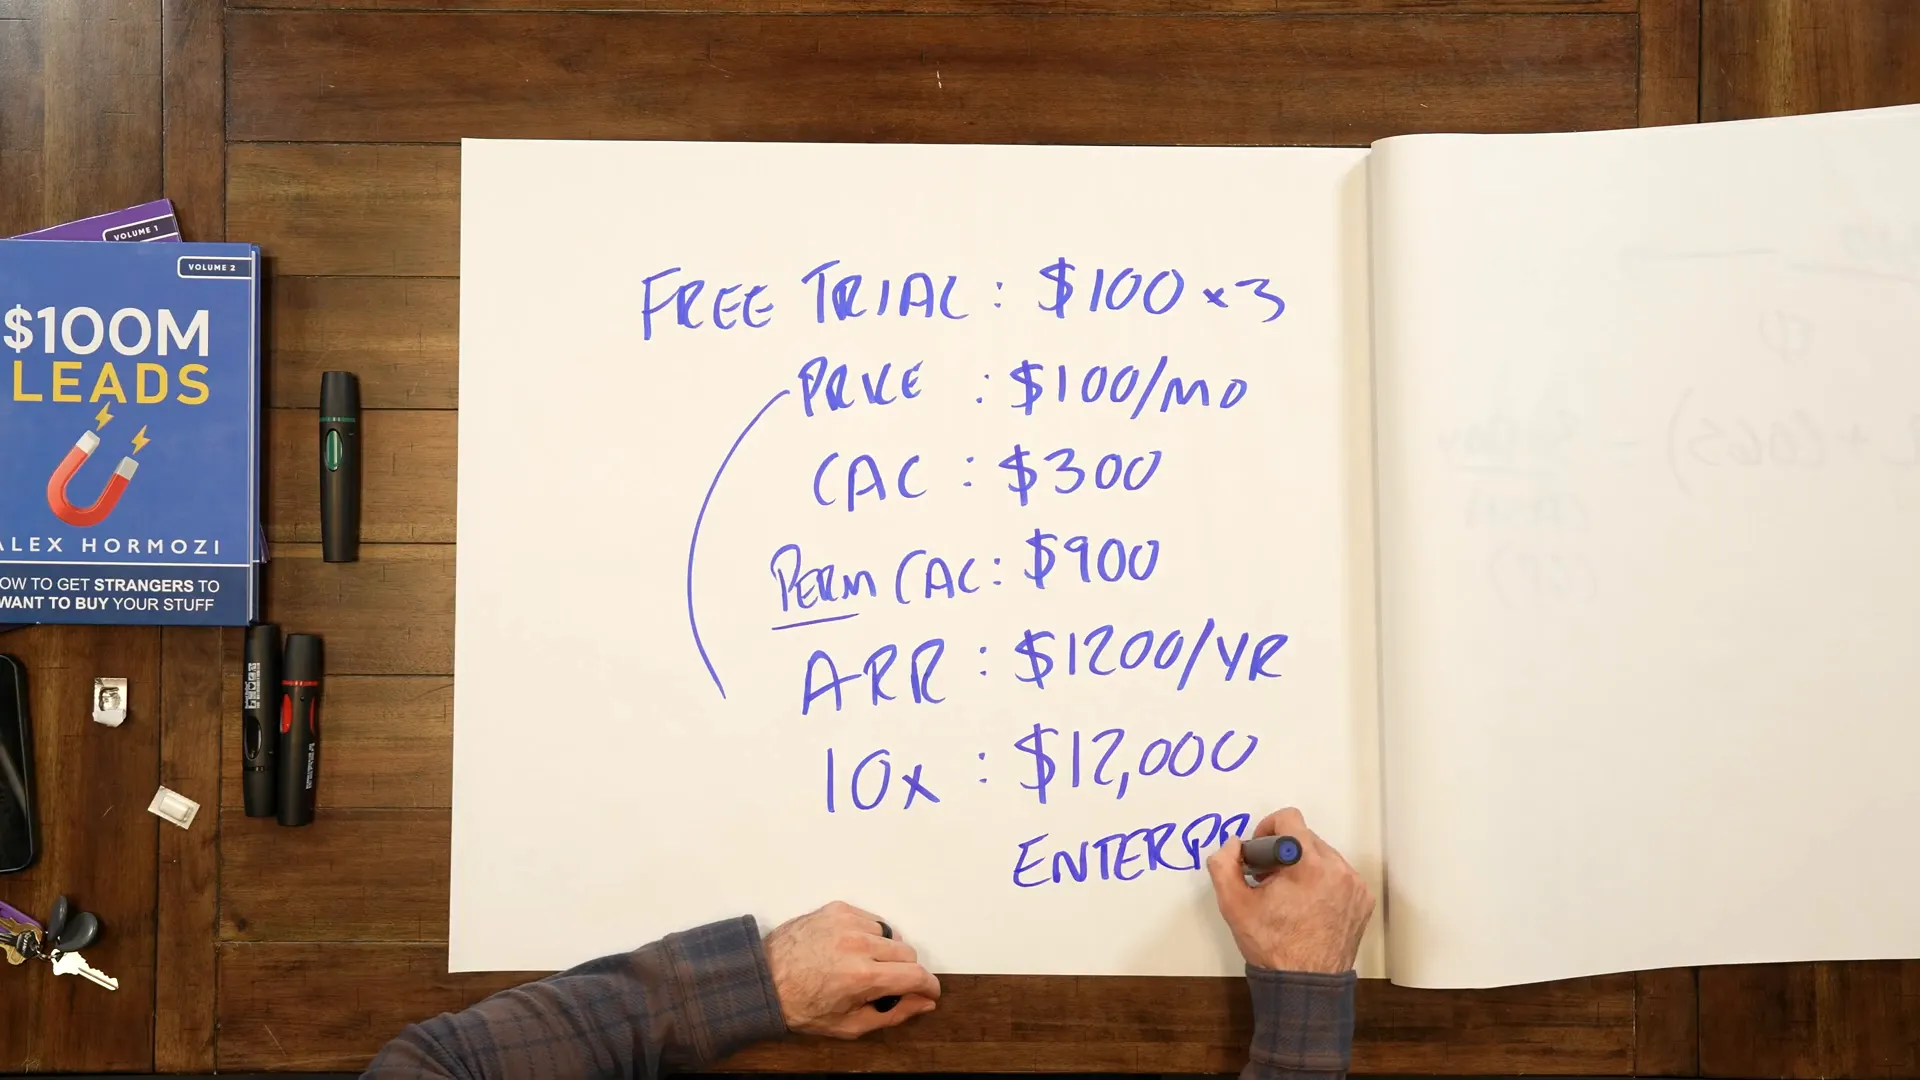 VOLUME 1
VOLUME 2
$100M
LEADS
ALEX HORMOZI
HOW TO GET STRANGERS TO
WANT TO BUY YOUR STUFF
FREE TRIAL : $100 x 3
PRICE : $100/MO
CAC : $300
PERM CAC : $900
ARR : $1200/YR
10x : $12,000
ENTERPR